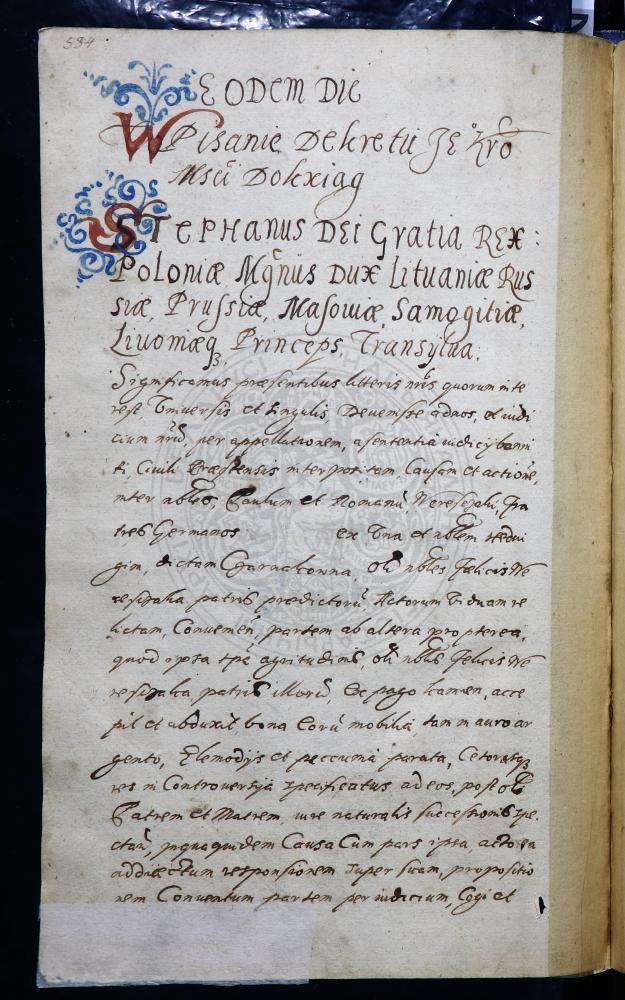 534
EODEM DIE
Wpisanie Dekretu JE° Kro
Msci Do kxiag
STEPHANUS DEI Gratia REX:
Poloniæ, Mgnus Dux Lituaniæ Rus
siæ, Prussiæ, Masoviæ, Samogitiæ,
Livoniæq3 Princeps, Transylua:
Significamus præsentibus litteris nris quorum inte
rest Universis et singulis Devenisse ad nos, et iudi
cium nrm, per appellationem, a sententia iudicij banni
ti, Civili interpositam Causam et actione,
inter nbles, Paulum et Romanu, Fra
tres Germanos ex una et nblem Hedvi
gim, dictam Czarnakowna, oli nbles Fælicis We
patris prædictoru Actorum Viduam re
lictam, Convemen, partem ab altera propterea,
quod ipsa tpe ægritudinis, oli nblis Felicis We
patris illoru, Ex pago kamien, acce
pit et abduxit bona Eoru mobilia, tam in auro ar
gento, Clenodijs et peccunia parata, Ceterasq3
res in Controversya specificatas ad eos, post ol
Patrem et Matrem, iure naturalis successionis spe
ctan, in qua quidem Causa Cum pars ipsa, actorea
ad directum responsionem super suam, propositio
nem Conventam partem per iudicium, Cogi et